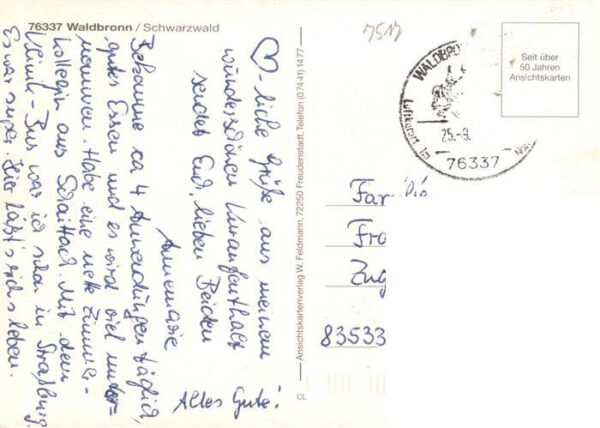 76337 Waldbronn / Schwarzwald
♡-liche Grüße aus meinem
wunderschönen Kuraufenthalt
sendet Euch, lieben Beiden
Annemarie
Bekomme ca 4 Anwendungen täglich,
gutes Essen und es wird viel unter-
nommen. Habe eine nette Zimmer-
kollegin aus Mit dem
Klinik-Bus war ich schon in Straßburg.
Es war super. Hier läßt's sich leben.
Alles Gute!
Ansichtskartenverlag W. Feldmann, 72250 Freudenstadt, Telefon (07441) 1477
WALDBRO
Luftkurort im
25.-9.
76337
Seit über
50 Jahren
Ansichtskarten
Fam
Fro
Zug
83533